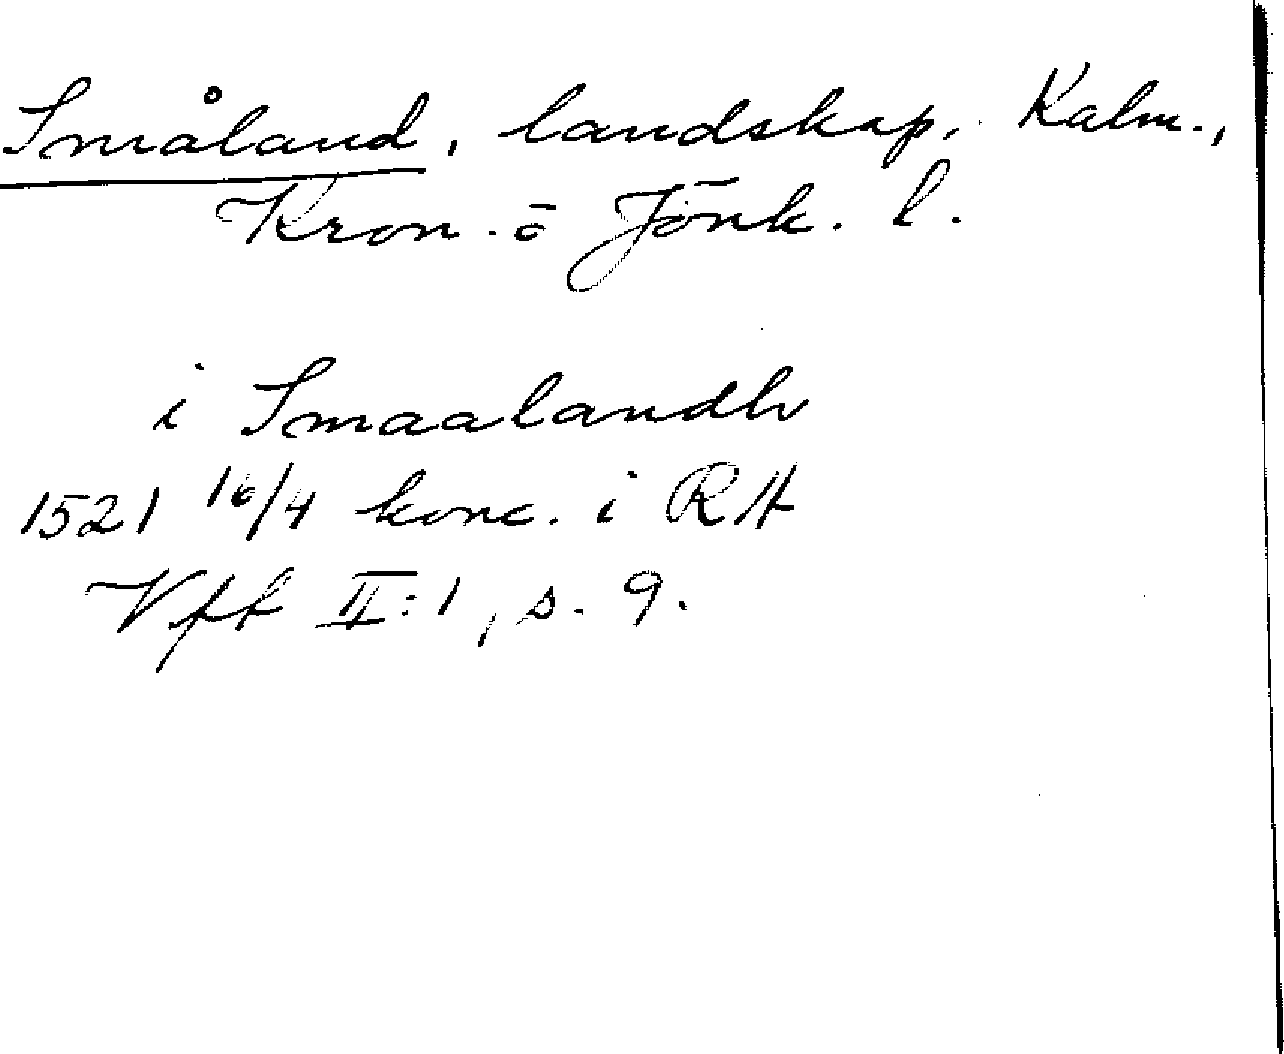 Småland, landskap, Kalm.,
Kron. ō Jōnk. l.
i Smaalandh
1521 16/4 konc. i RA
Vff II:1, s. 9.